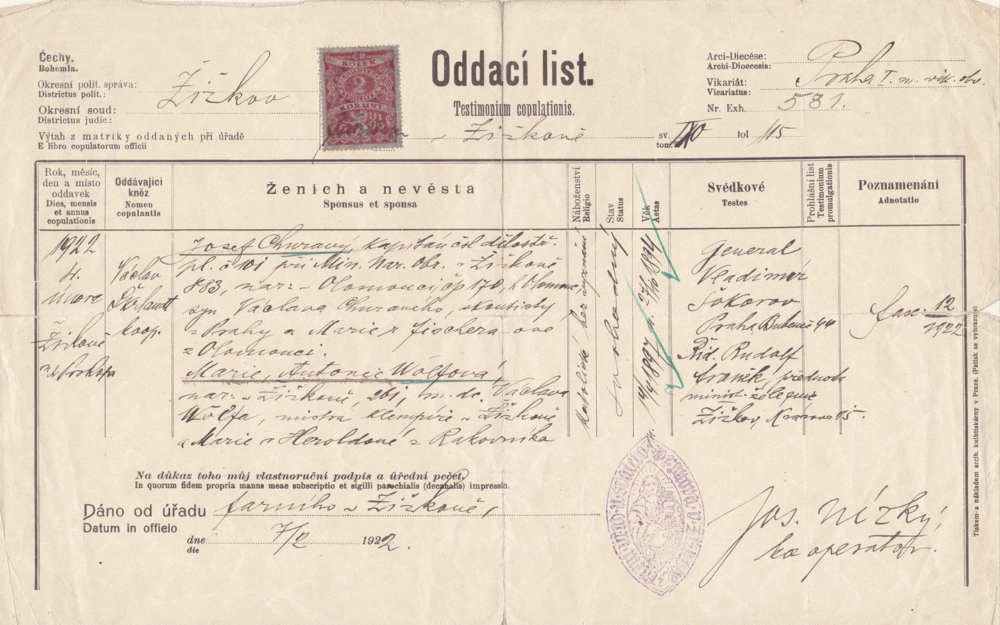 Čechy,
Bohemia.
Okresní polit. správa:
Districtus polit.:
Žižkov
Okresní soud:
Districtus judic.:
Výtah z matriky oddaných při úřadě
E libro copulatorum officii
KOLEK
2
KORUNY
Oddací list.
Testimonium copulationis.
v Žižkově
sv.
tom.
fol 115
Arci-Diecése:
Archi-Dioecesis:
Praha
Vikariát:
Vicariatus:
Nr. Exh. 581.
Rok, měsíc,
den a místo
oddavek
Dies, mensis
et annus
copulationis
Oddávající
kněz
Nomen
copulantis
Ženich a nevěsta
Sponsus et sponsa
Náboženství
Religio
Stav
Status
Věk
Aetas
Svědkové
Testes
Prohlášní list
Testimonium
promulgationis
Poznamenání
Adnotatio
1922
4.
února
Žižkově
u sv Prokopa
Václav
koop.
Josef Churavý, kapitán čsl dělostř.
pl. č 101 při Min. Nar. Obr. v Žižkově
883, nar: v Olomouci čp 170, h Olomouc,
syn Václava Churavého,
z Prahy a Marie r Fischera-ové
z Olomouci.
Marie, Antonie Wolfová,
nar: v Žižkově 261, m. dc. Václava
Wolfa, mistra klempíře v Žižkově
a Marie r Heroldové z Rakovníka
katolické bez vyznání
svobodný
General
Vladimír
Šokorov
Praha Bubeneč 44
Rud. Rudolf
přednosta
minist. železnic
Žižkov, 15.
fasc. 12
1922
Na důkaz toho můj vlastnoruční podpis a úřední pečeť.
In quorum fidem propria manus meae subscriptio et sigilli parochialis (decanalis) impressio.
Dáno od úřadu farního v Žižkově,
Datum in officio
dne
die
7/2 1922.
Jos. Nízký,
kooperátor.
Tiskem a nákladem arcib. knihtiskárny v Praze. (Patisk se vyhrazuje)